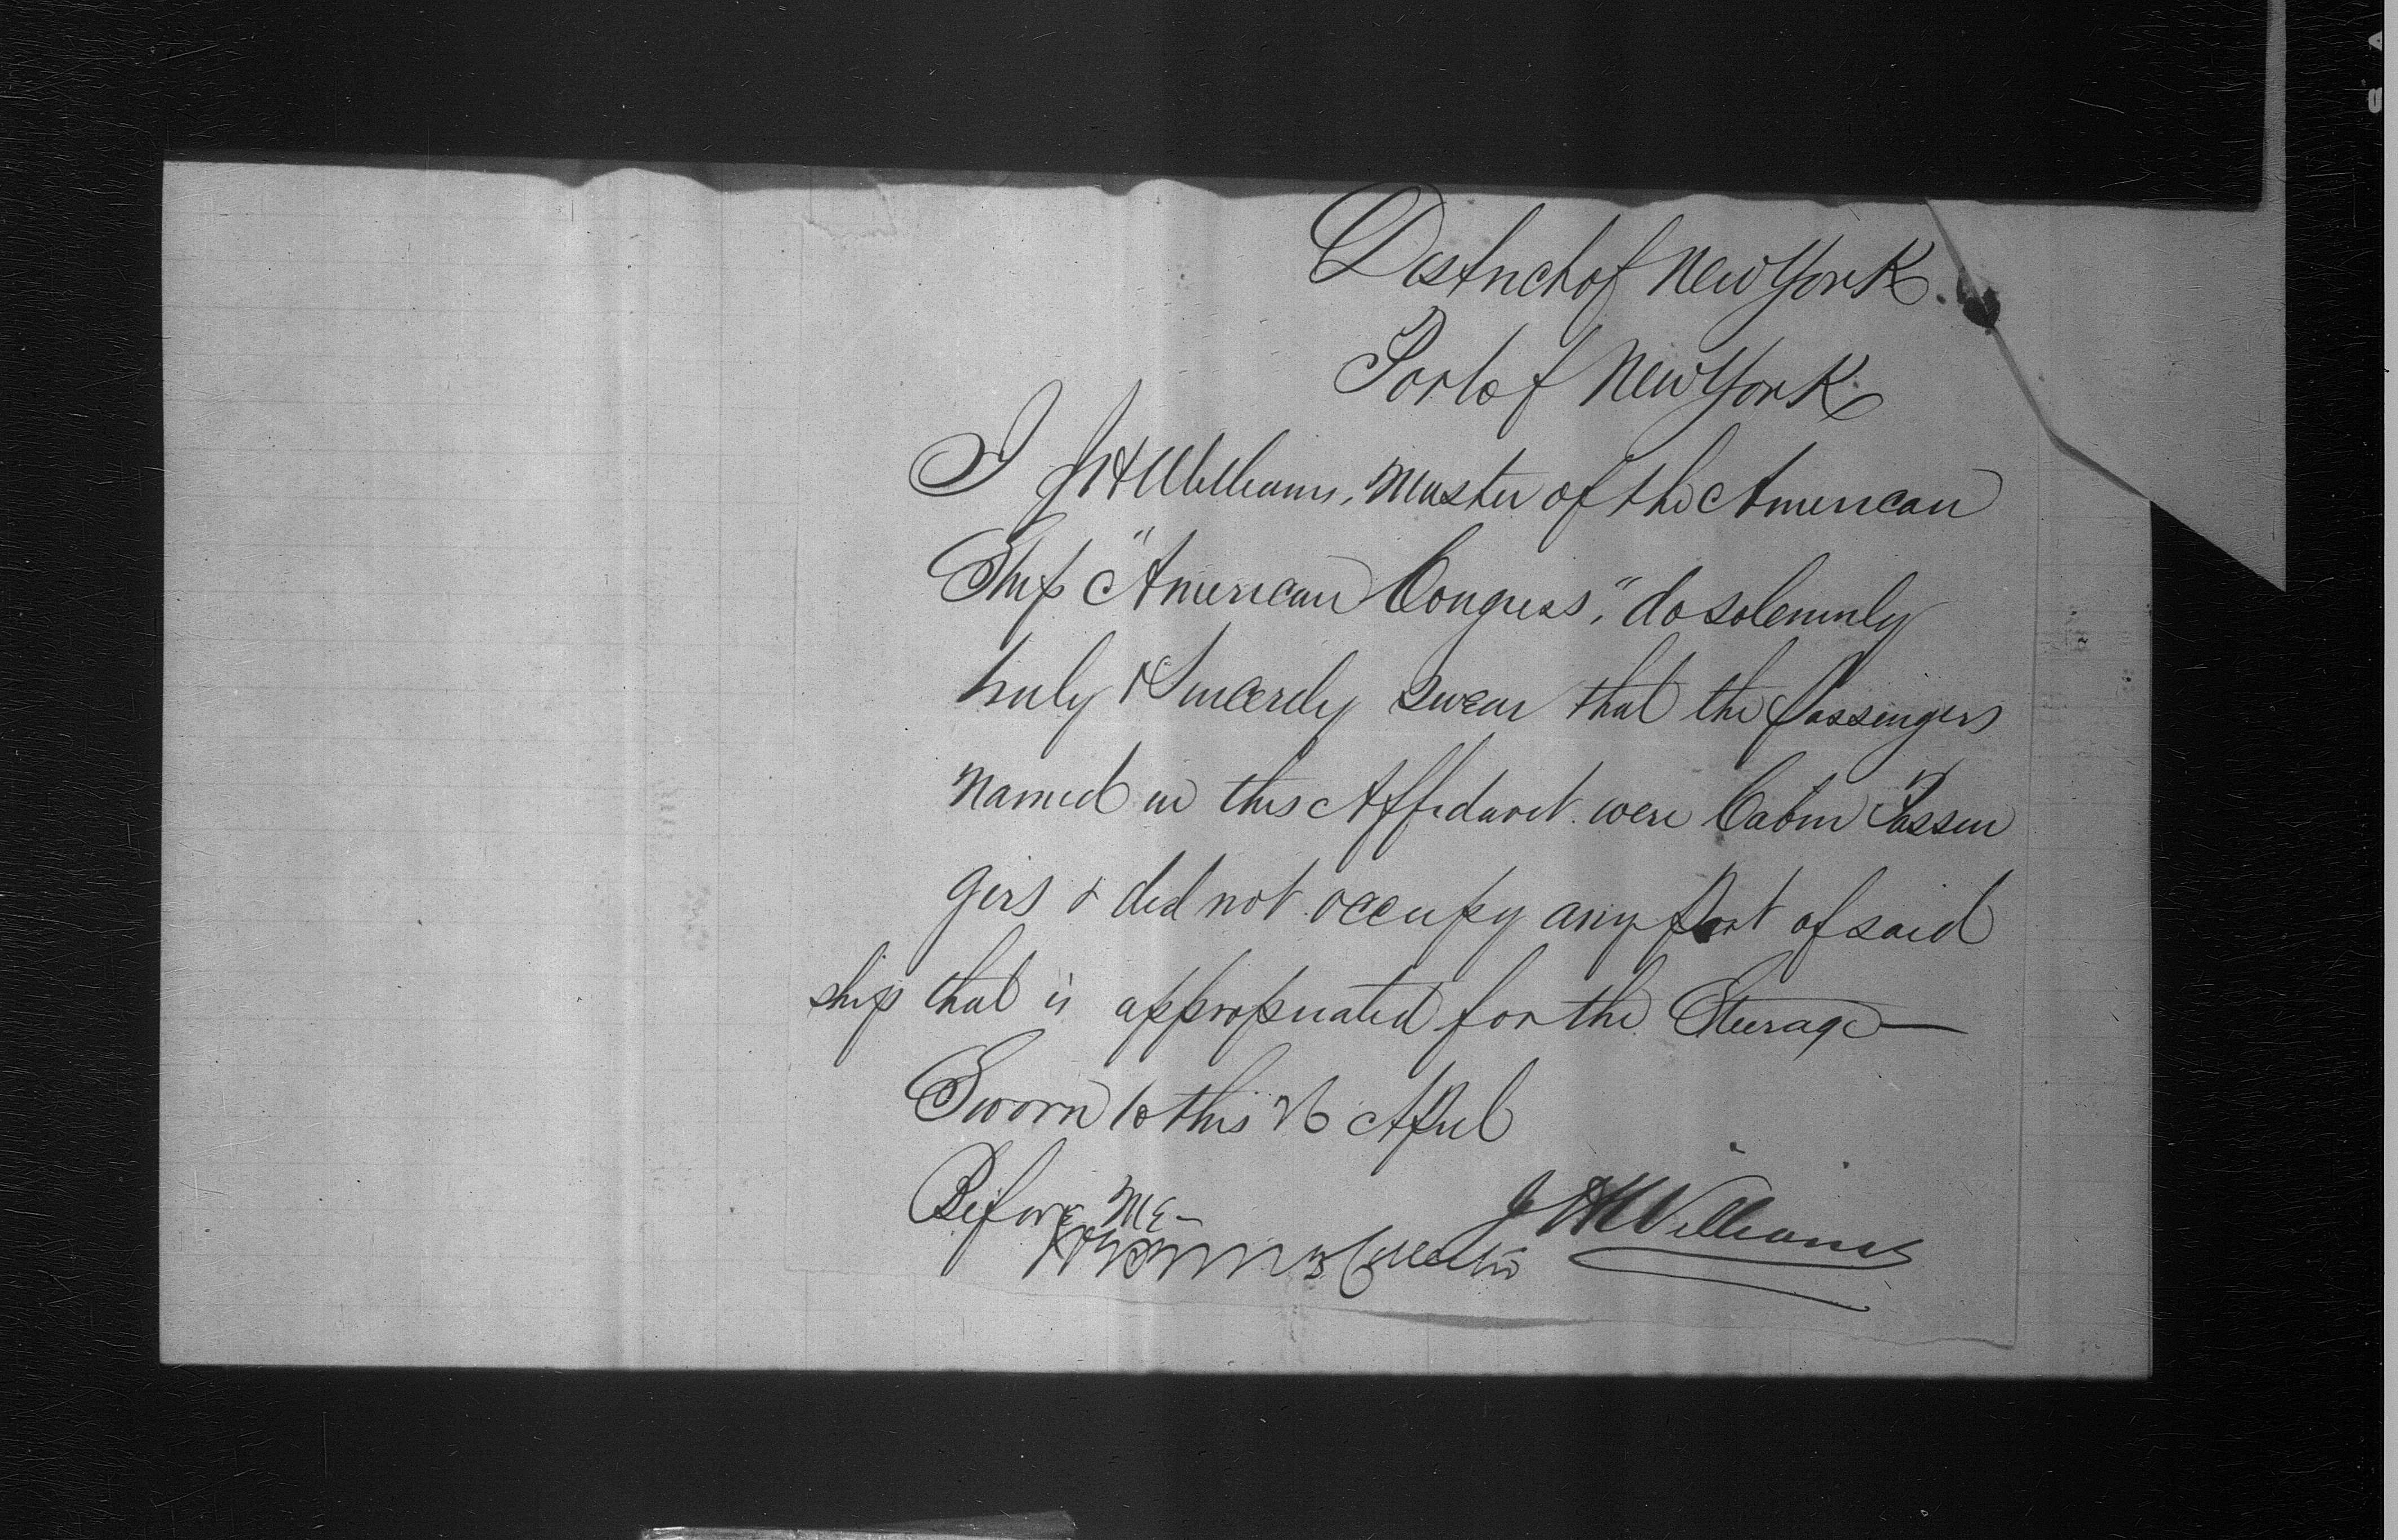 District of New York.
Port of New York
I J H Williams, Master of the American
Ship "American Congress," do solemnly
truly & Sincerely swear that the Passengers
named in this Affidavit were Cabin Passen
gers & did not occupy any Part of said
ship that is appropriated for the Steerage
Sworn to this 26 April
Before Me
J H Williams
Collector